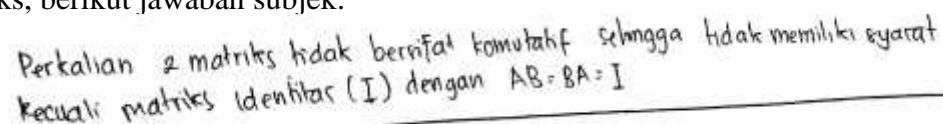 ks, berikut jawaban subjek:
Perkalian 2 matriks tidak bersifat komutatif sehingga tidak memiliki syarat
kecuali matriks identitas (I) dengan AB = BA = I